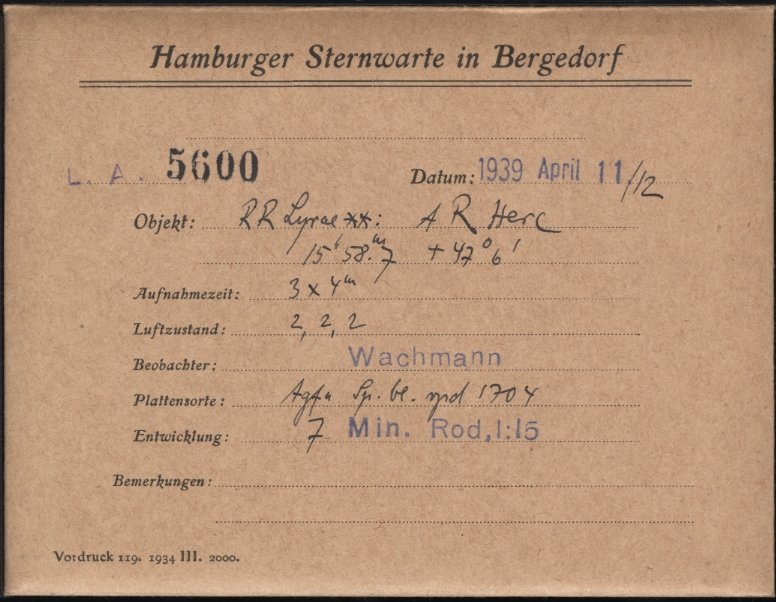 Hamburger Sternwarte in Bergedorf
L. A. 5600 Datum: 1939 April 11/12
Objekt: RR Lyrae **: AR Herc
15ʰ 58.ᵐ7 + 47° 6'
Aufnahmezeit: 3 x 4ᵐ
Luftzustand: 2, 2, 2
Beobachter: Wachmann
Plattensorte: Agfa Sp. bl. 1704
Entwicklung: 7 Min. Rod. 1:15
Bemerkungen:
Vordruck 119. 1934 III. 2000.